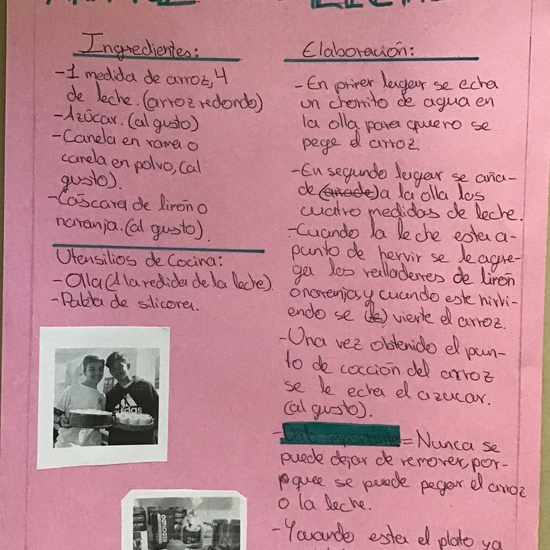 Ingredientes:
-1 medida de arroz, 4
de leche. (arroz redondo)
-Azúcar. (al gusto)
-Canela en rama o
canela en polvo, (al
gusto).
-Cáscara de limón o
naranja. (al gusto).
Utensilios de Cocina:
-Olla (A la medida de la leche)
-Paleta de silicona.
adidas
Elaboración:
-En primer lugar se echa
un chorrito de agua en
la olla para que no se
pege el arroz.
-En segundo lugar se aña-
de (añade) a la olla las
cuatro medidas de leche.
-Cuando la leche esta a-
punto de hervir se le agre-
ga los ralladores de limón
o naranja, y cuando este hirvi-
endo se (le) vierte el arroz.
-Una vez obtenido el pun-
to de cocción del arroz
se le echa el azucar.
(al gusto).
-Dato importante = Nunca se
puede dejar de remover, por-
que se puede pegar el arroz
o la leche.
-Y cuando este el plato ya